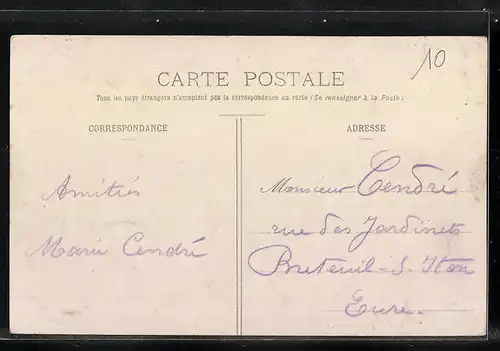 10
CARTE POSTALE
Tous les pays étrangers n'acceptent pas la correspondance au recto (Se renseigner à la Poste)
CORRESPONDANCE
Amitiés
Marie Cendré
ADRESSE
Monsieur Cendré
rue des Jardinets
Breteuil-s-Iton
Eure.